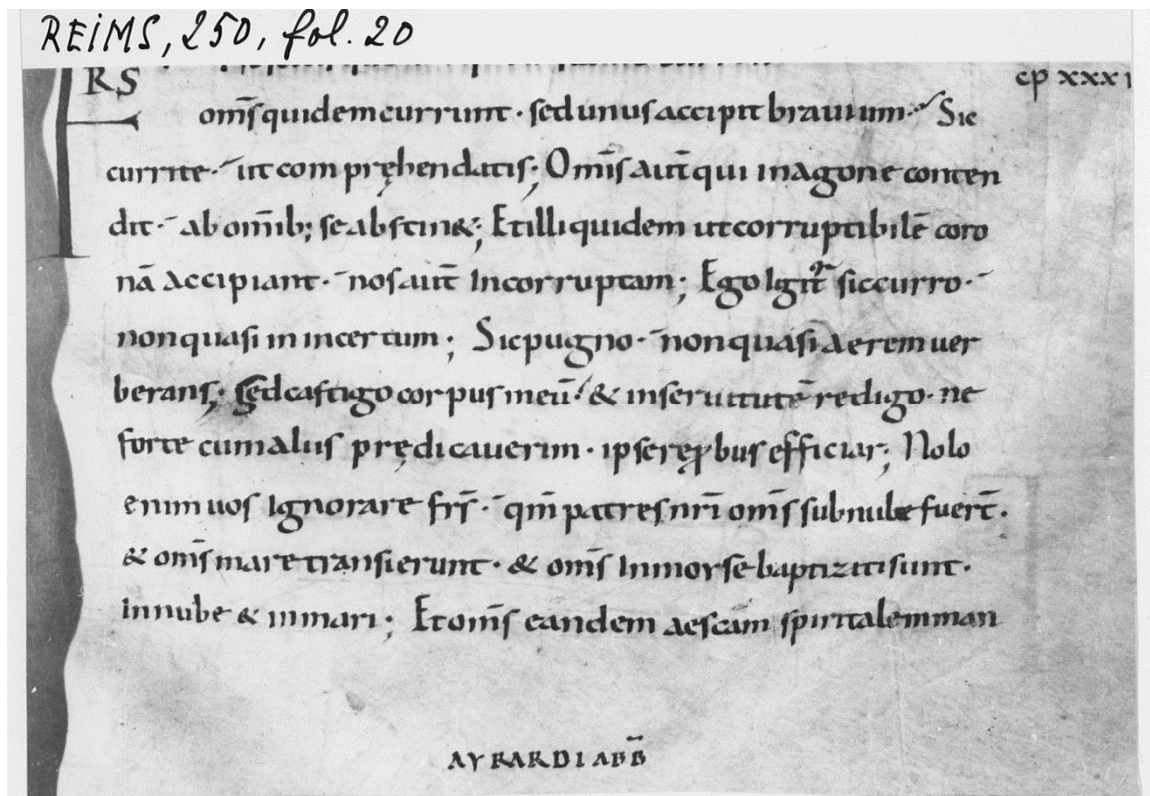 REIMS, 250, fol. 20
FRS
cp xxxi
om̅s quidem currunt · sed unus accipit brauium · Sic
currite · ut compręhendatis ; Om̅is aut̅ qui in agone conten
dit · ab om̅ib; se abstin&; Et illi quidem ut corruptibile̅ coro
na̅ accipiant · nos aut̅ Incorruptam ; Ego Igit̅ sic curro ·
non quasi in incertum ; Sic pugno · non quasi aerem uer
berans ; Sed castigo corpus meu̅ · & in seruitute̅ redigo · ne
forte cum aliis prędicauerim · ipse rępbus efficiar ; Nolo
enim uos Ignorare fr̅s · qm̅ patres nr̅i om̅s sub nube fuer̅t ·
& om̅s mare transierunt · & om̅s In moyse baptizati sunt ·
In nube & in mari ; Et om̅s eandem aescam spiritalem man
AYRARDI ABB̅